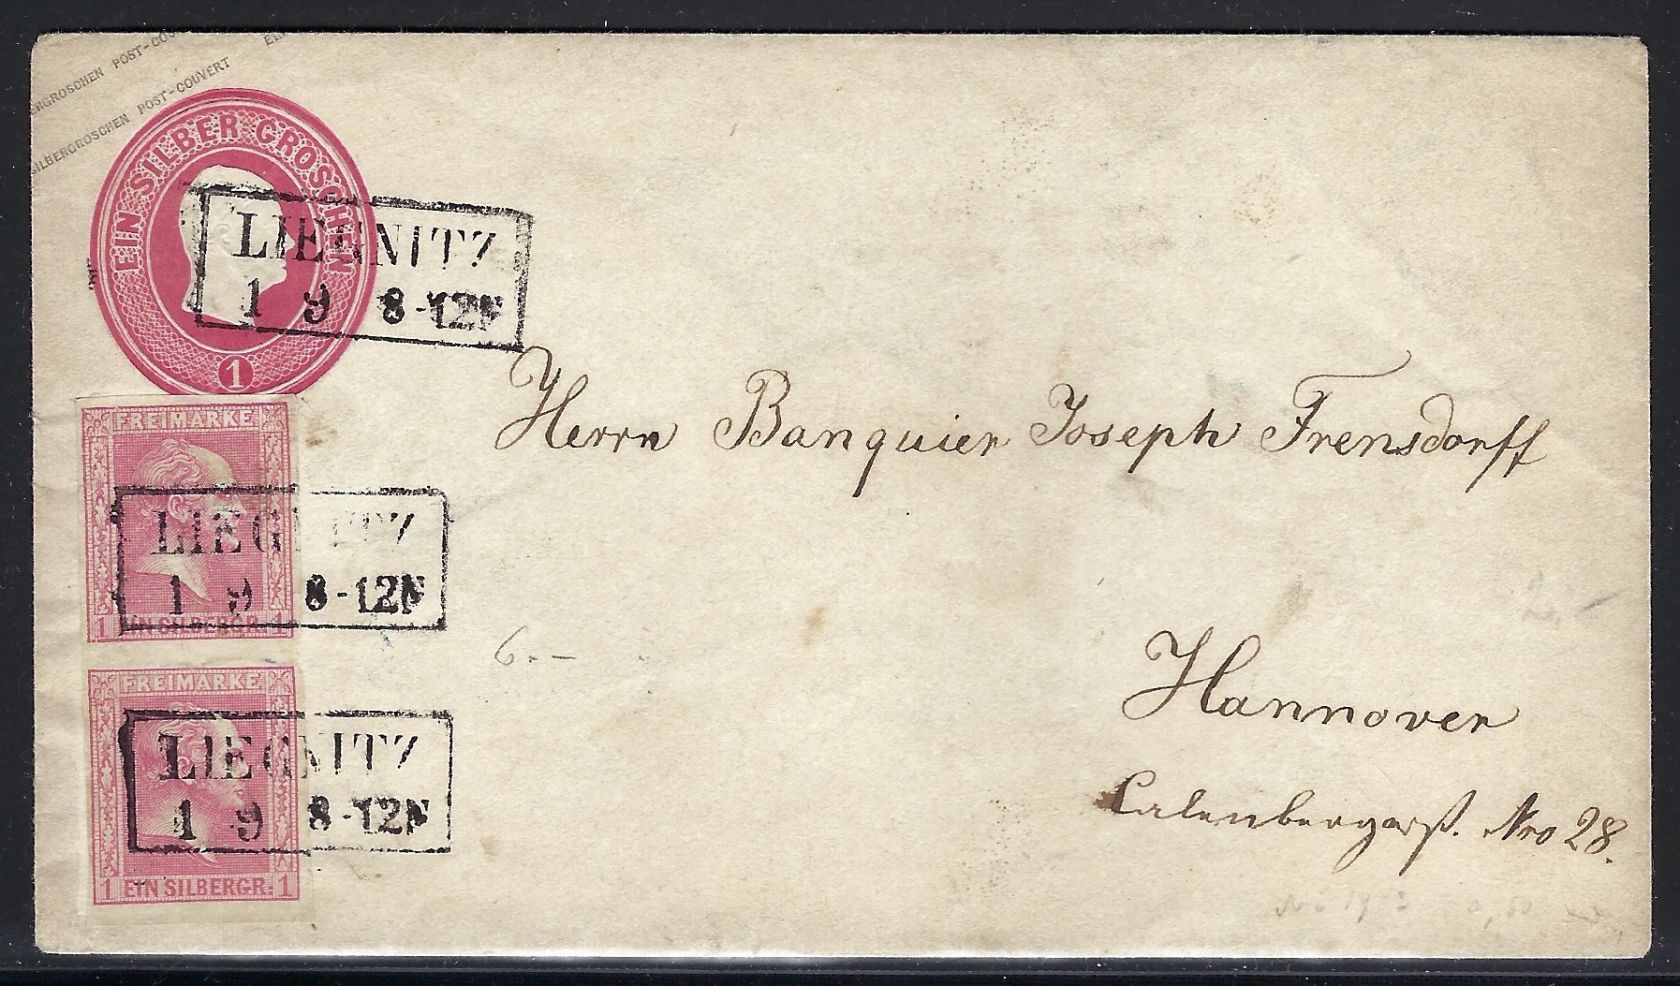 ERGROSCHEN POST-COU
SILBERGROSCHEN POST-COUVERT
EIN SILBER GROSCHEN
1
LIEGNITZ
1 9 8-12N
FREIMARKE
LIEGNITZ
1 9 8-12N
1 EIN SILBERGR. 1
FREIMARKE
LIEGNITZ
1 9 8-12N
1 EIN SILBERGR. 1
Herrn Banquier Joseph Frensdorff
6.-
Hannover
Calenbergerst. Nro 28.